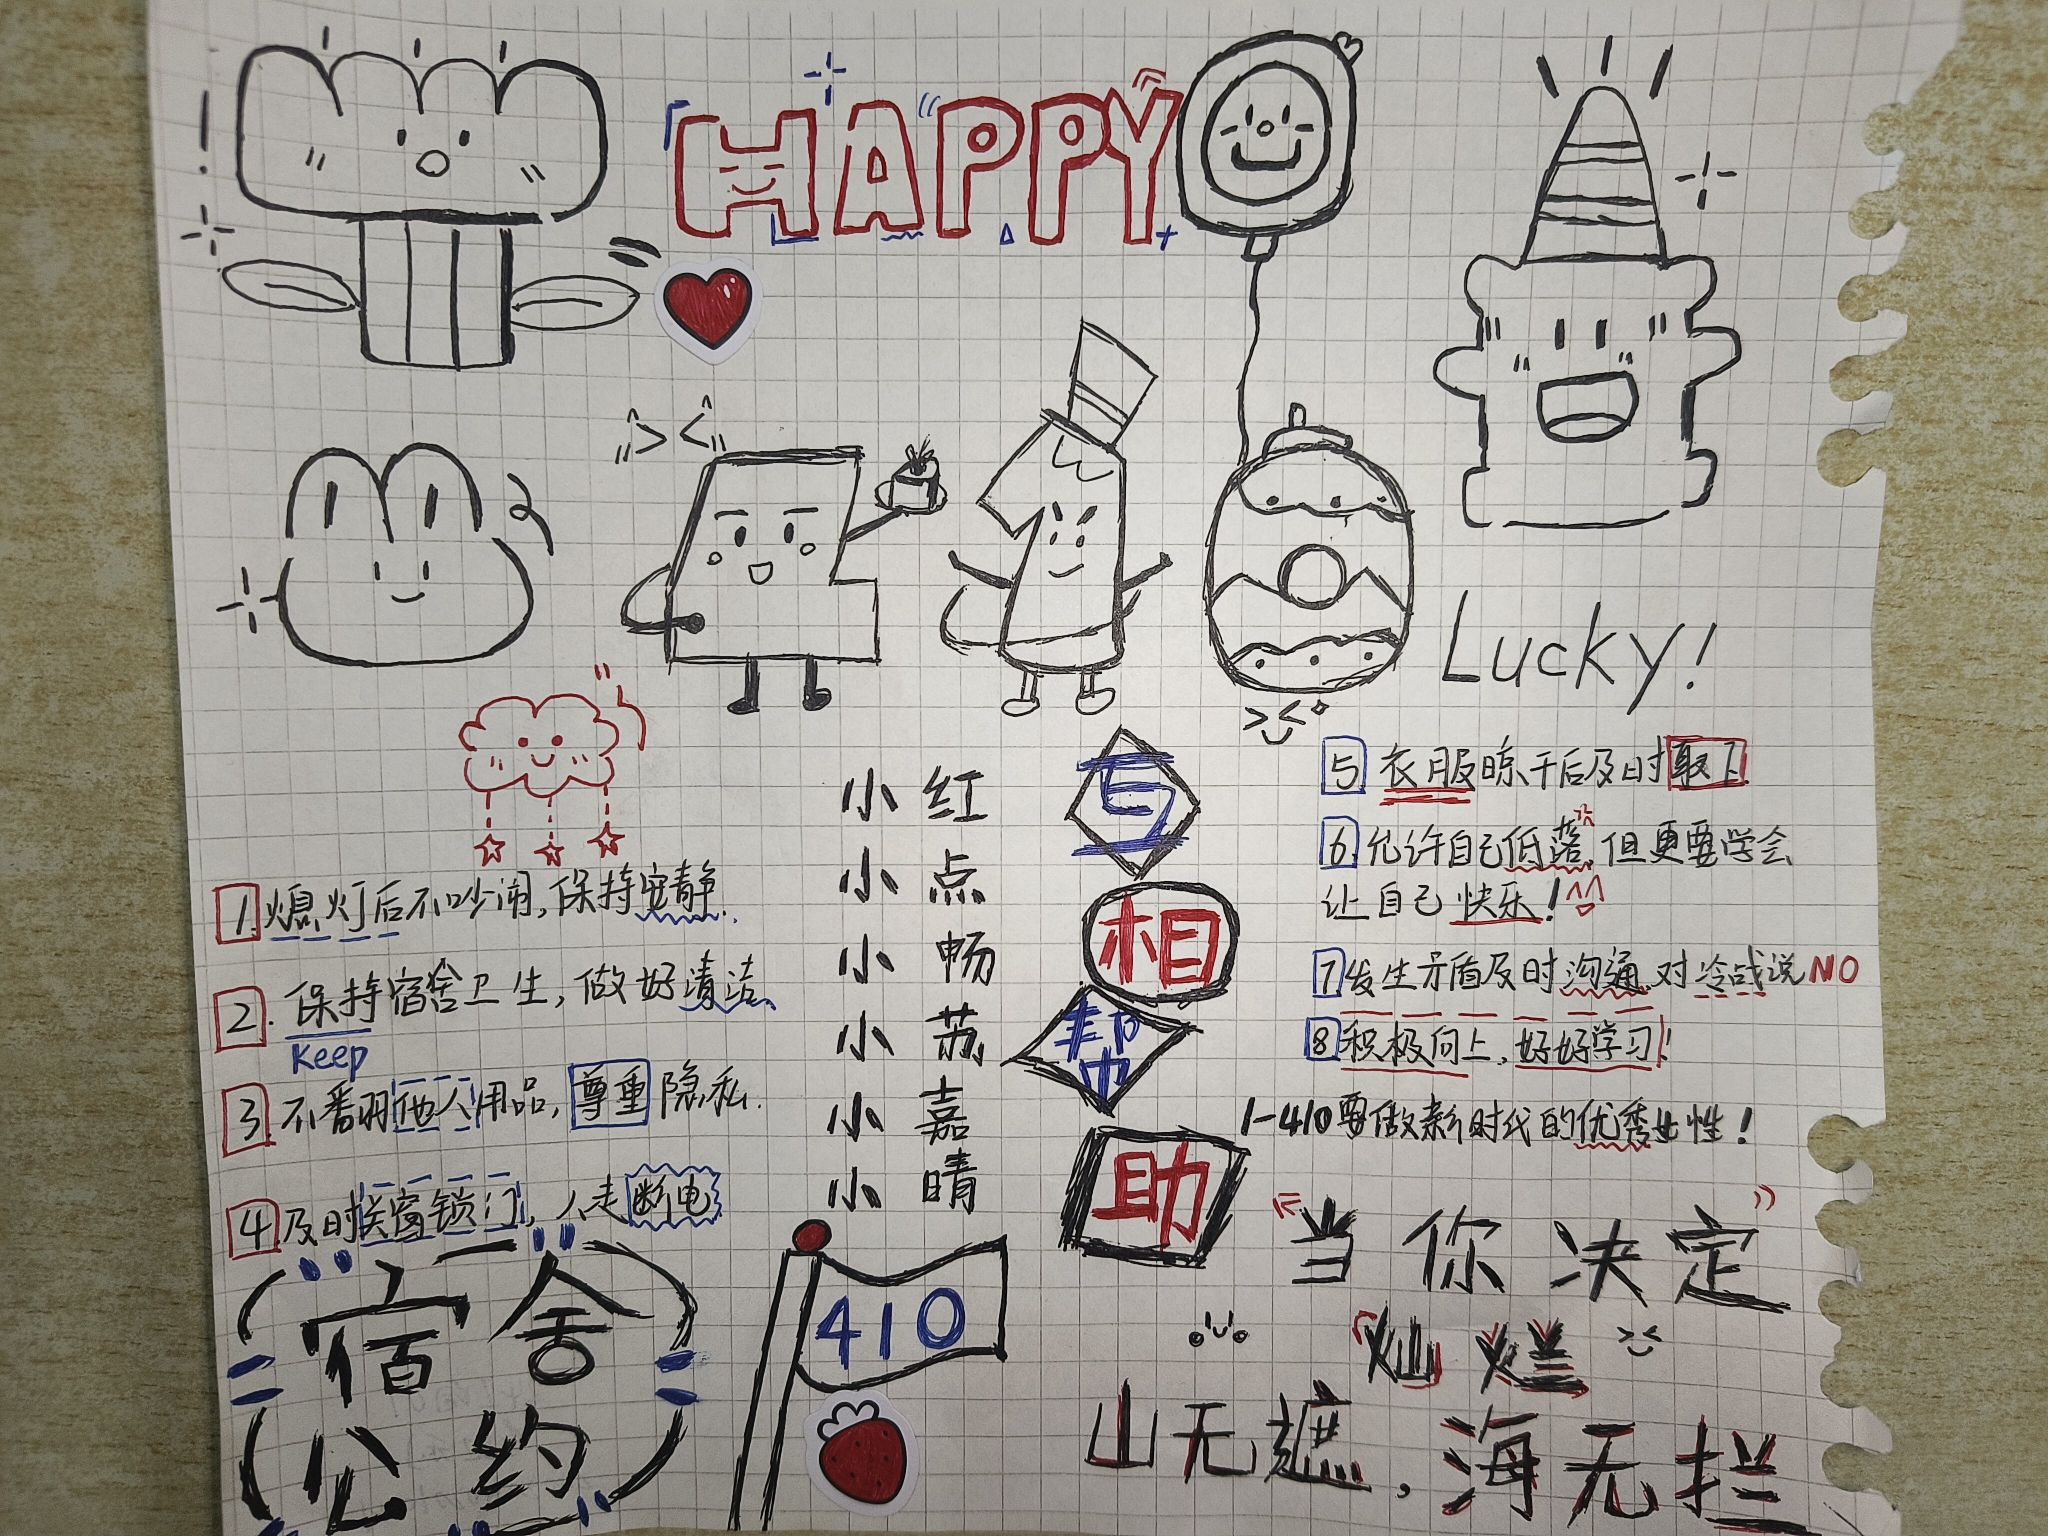 HAPPY
Lucky!
1.熄灯后不吵闹,保持安静.
2.保持宿舍卫生,做好清洁、
Keep
3.不翻他人用品,尊重隐私.
4.及时关窗锁门,人走断电
小红
小点
小畅
小荔
小嘉
小晴
与
相
帮
助
5 衣服晾干后及时取下
6.允许自己低落,但更要学会
让自己快乐!
7发生矛盾及时沟通,对冷战说NO
8积极向上,好好学习!
1-410要做新时代的优秀女性!
宿舍
公约
410
当你决定
灿烂
山无遮,海无拦